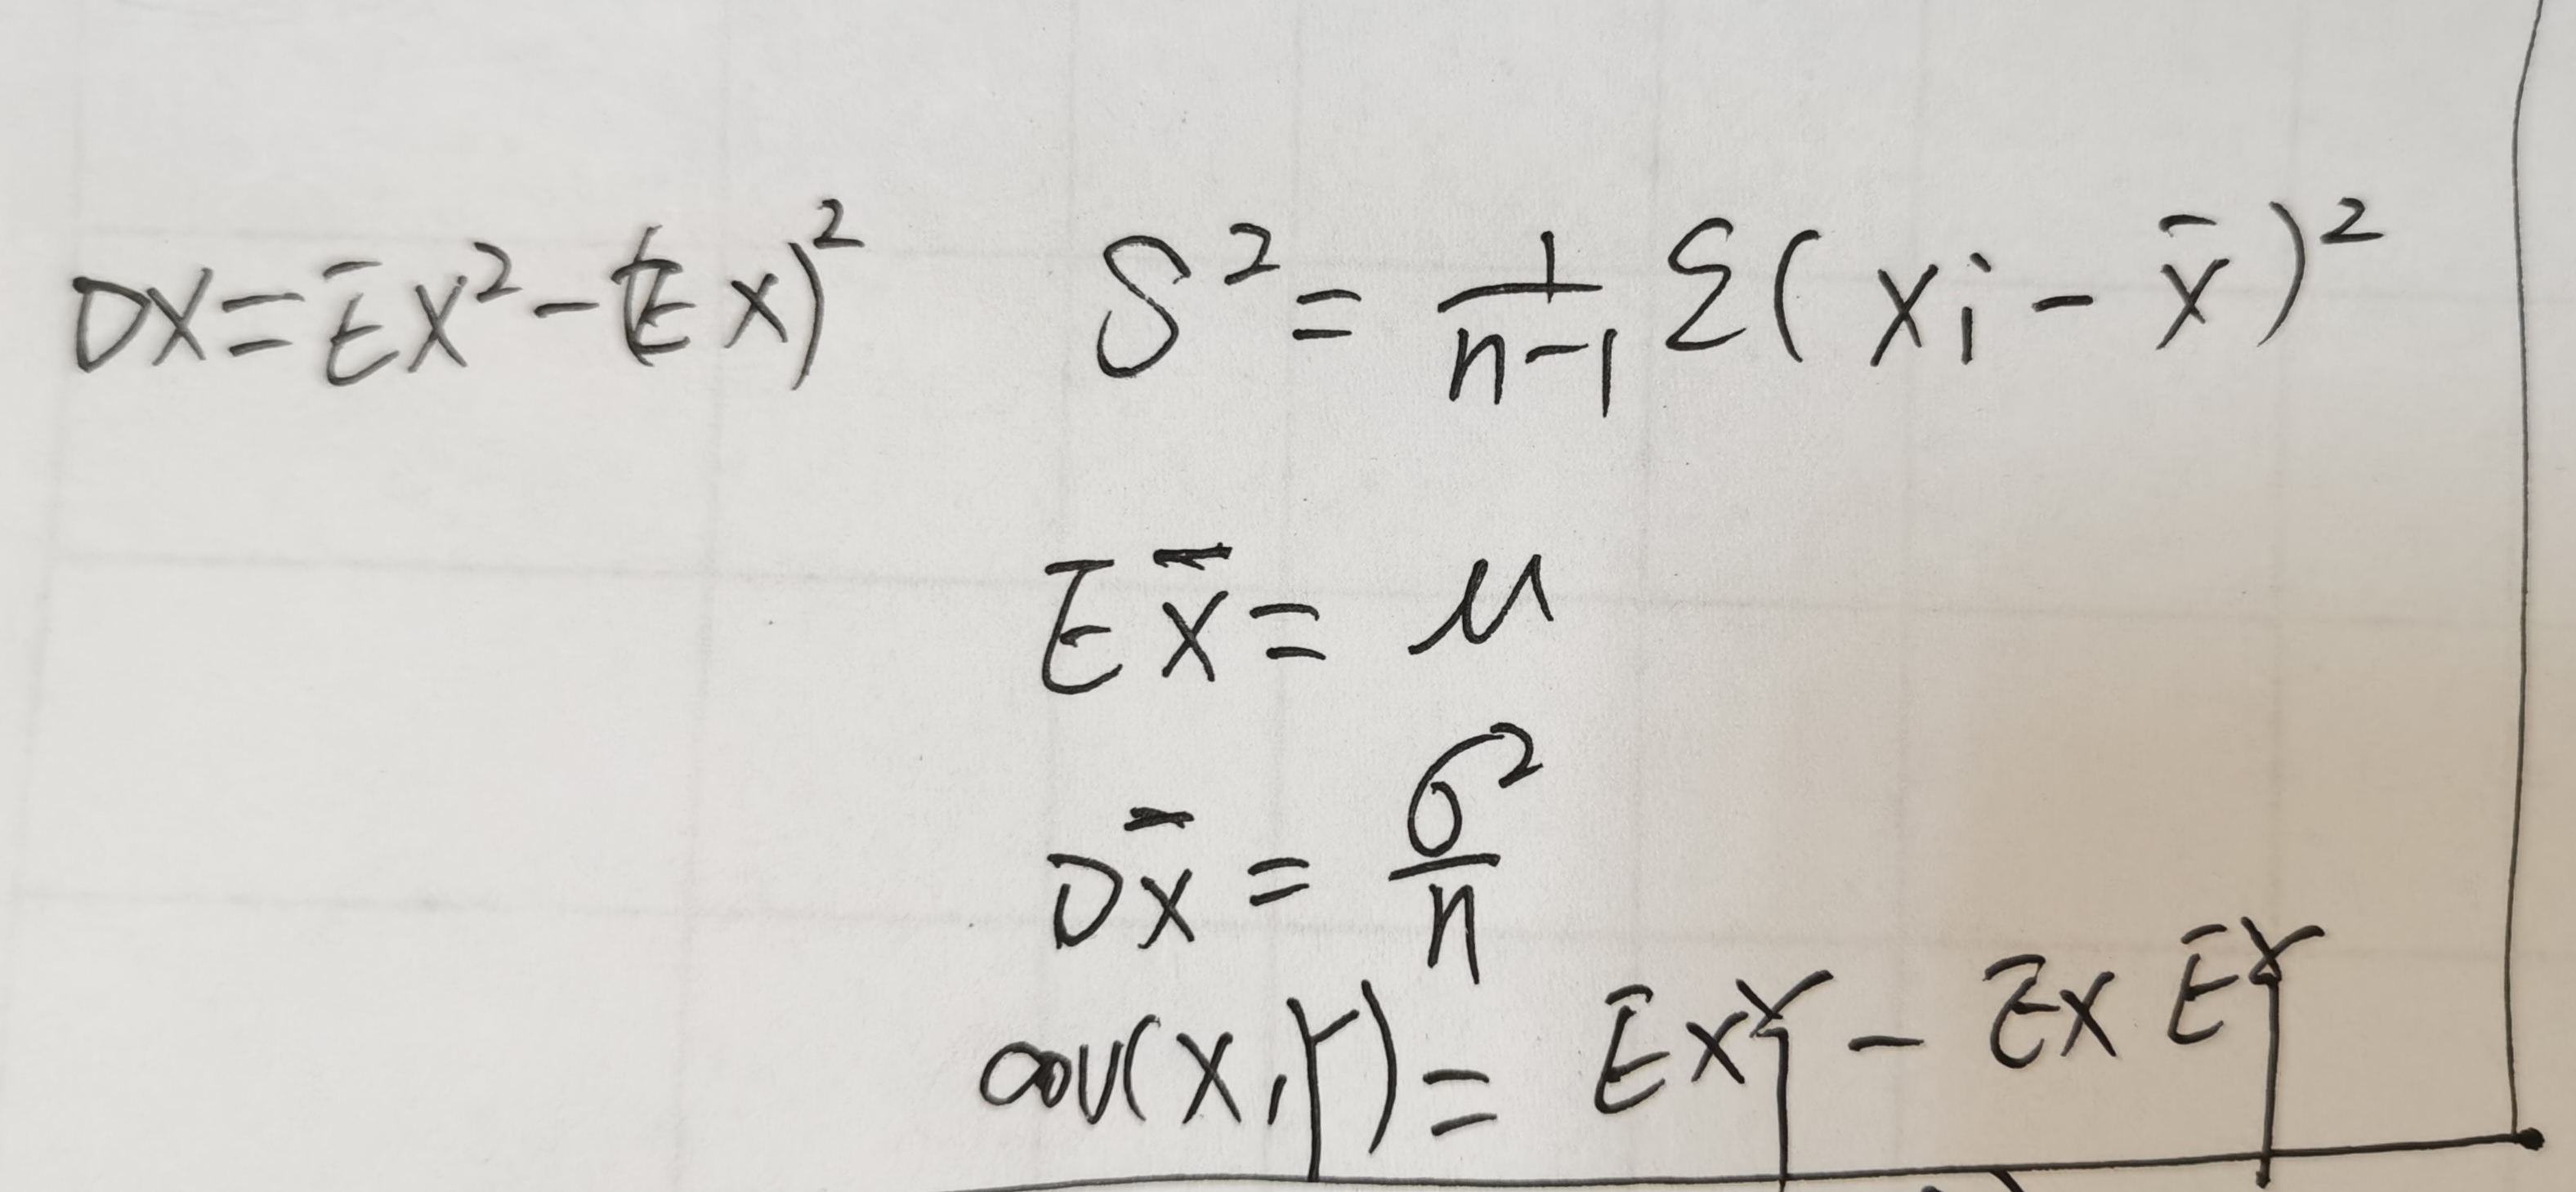 DX=EX²-(EX)² S²=1/(n-1) Σ(xi-x̄)²
Ex̄=μ
Dx̄=σ²/n
cov(X,Y)=EXY-EXEY